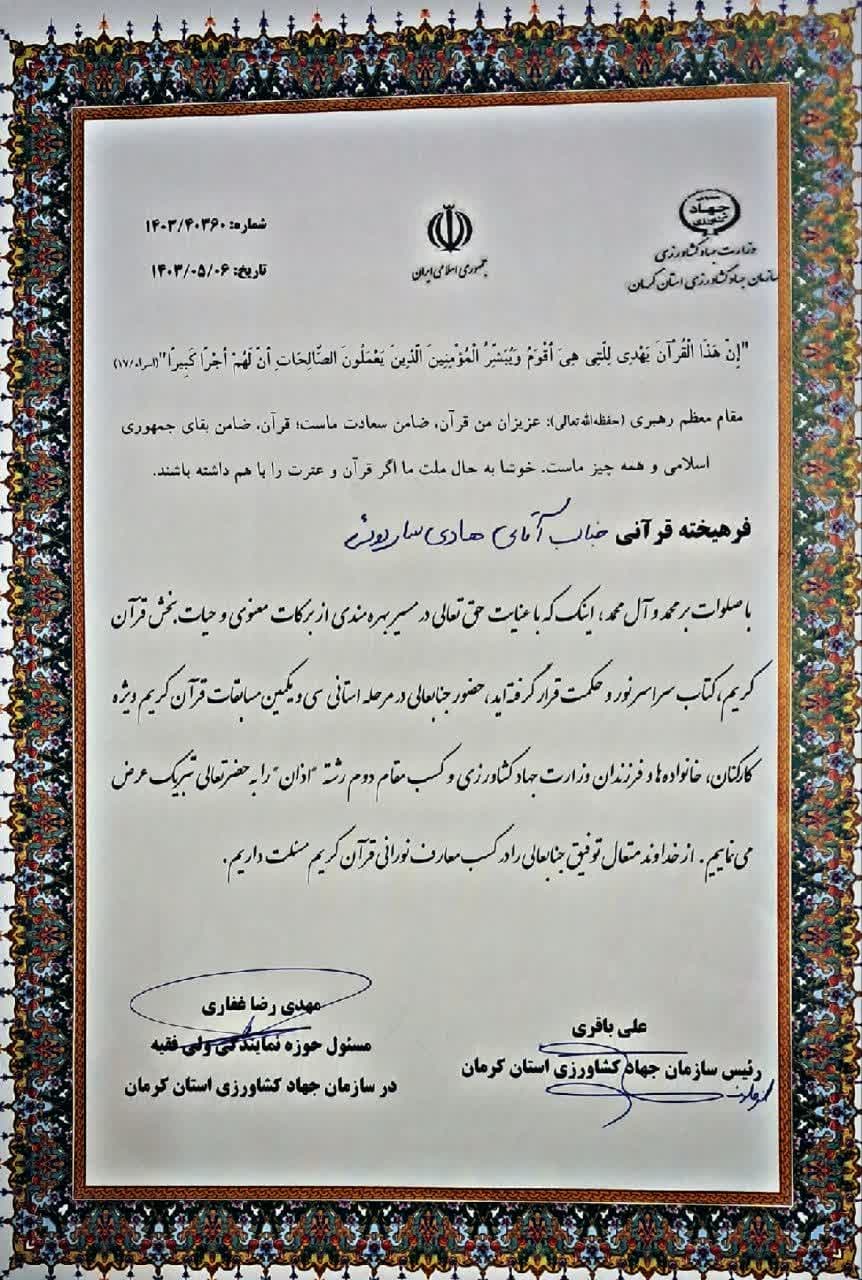 جهاد
کشاورزی
وزارت جهاد کشاورزی
سازمان جهاد کشاورزی استان کرمان
جمهوری اسلامی ایران
شماره: ۱۴۰۳/۴۰۳۶۰
تاریخ: ۱۴۰۳/۰۵/۰۶
"إِنّ هَذَا الْقُرْآنَ يَهْدِي لِلَّتِي هِيَ أَقْوَمُ وَيُبَشِّرُ الْمُؤْمِنِينَ الَّذِينَ يَعْمَلُونَ الصَّالِحَاتِ أَنّ لَهُمْ أَجْرًا كَبِيرًا"(اسراء/۱۷)
مقام معظم رهبری (حفظه‌الله‌تعالی): عزیزان من قرآن، ضامن سعادت ماست؛ قرآن، ضامن بقای جمهوری
اسلامی و همه چیز ماست. خوشا به حال ملت ما اگر قرآن و عترت را با هم داشته باشند.
فرهیخته قرآنی جناب آقای هادی
با صلوات بر محمد و آل محمد، اینک که با عنایت حق تعالی در مسیر بهره مندی از برکات معنوی و حیات بخش قرآن
کریم، کتاب سراسر نور و حکمت قرار گرفته اید، حضور جنابعالی در مرحله استانی سی و یکمین مسابقات قرآن کریم ویژه
کارکنان، خانواده ها و فرزندان وزارت جهاد کشاورزی و کسب مقام دوم رشته "اذان" را به حضرتعالی تبریک عرض
می نماییم. از خداوند متعال توفیق جنابعالی را در کسب معارف نورانی قرآن کریم مسئلت داریم.
علی باقری
رئیس سازمان جهاد کشاورزی استان کرمان
مهدی رضا غفاری
مسئول حوزه نمایندگی ولی فقیه
در سازمان جهاد کشاورزی استان کرمان